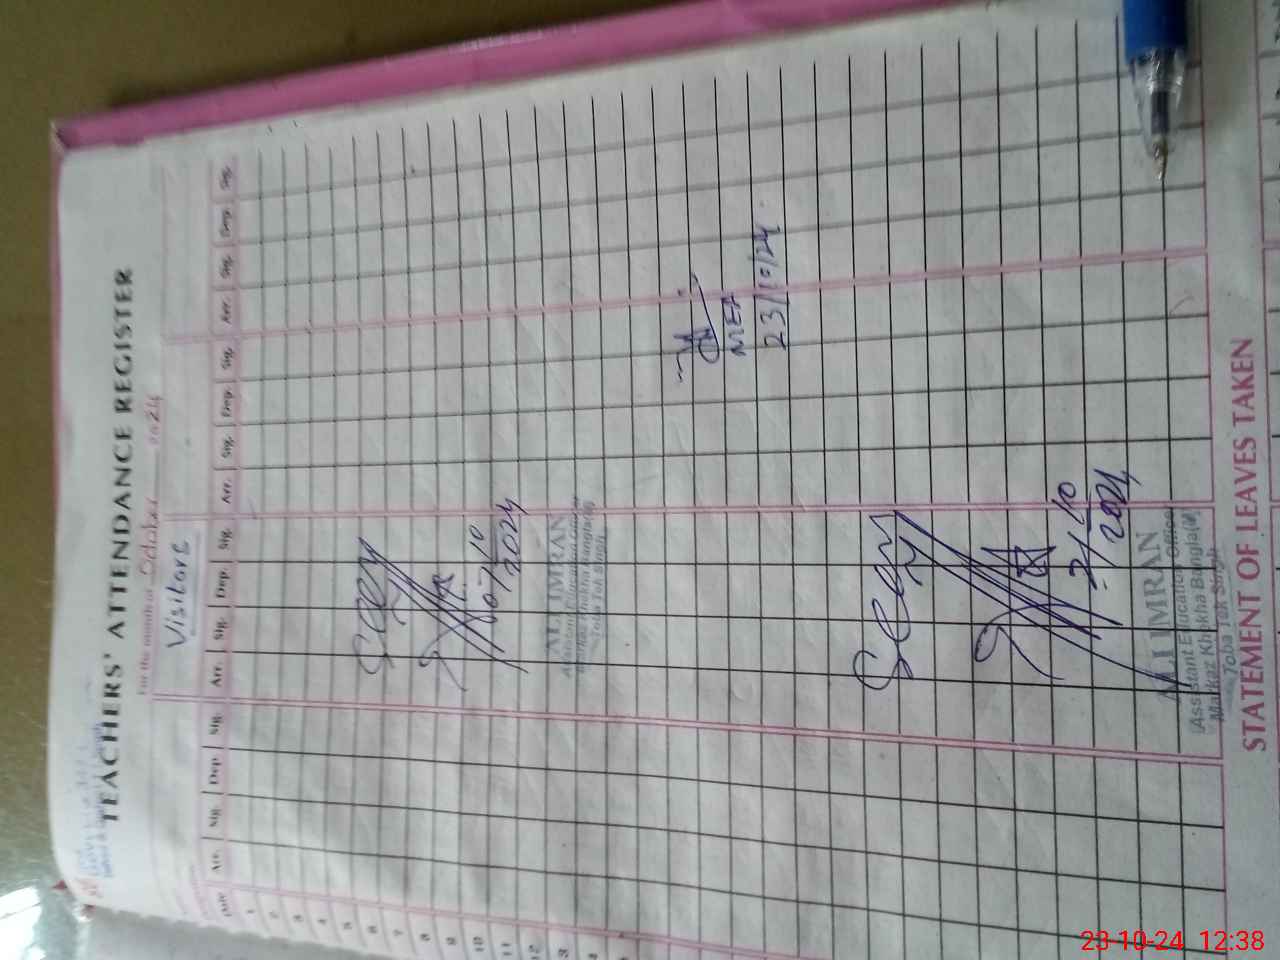 TEACHERS' ATTENDANCE REGISTER
For the month of October 2024
Visitors
Date Arr. Sig. Dep. Sig. Arr. Sig. Dep. Sig. Arr. Sig. Dep. Sig. Arr. Sig. Dep. Sig.
1
2
3
4
5
6
7
8
9
10
11
12
13
Seen
10
2024
ALI IMRAN
Assistant Education Officer
Markaz Khokha Bangla(M)
Toba Tek Singh
MEA
23/10/24
Seen
21/10
2024
ALI IMRAN
Assistant Education Officer
Markaz Khokha Bangla(M)
Toba Tek Singh
STATEMENT OF LEAVES TAKEN
23-10-24 12:38